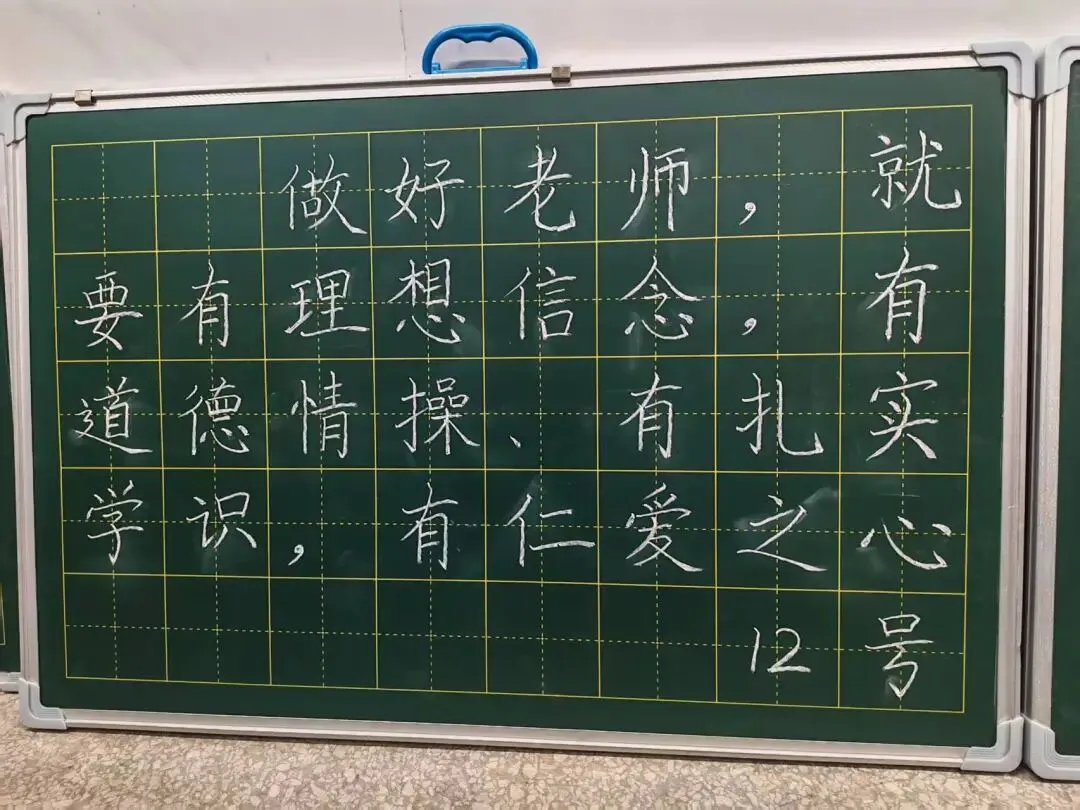 做好老师，就
要有理想信念，有
道德情操、有扎实
学识，有仁爱之心
12号